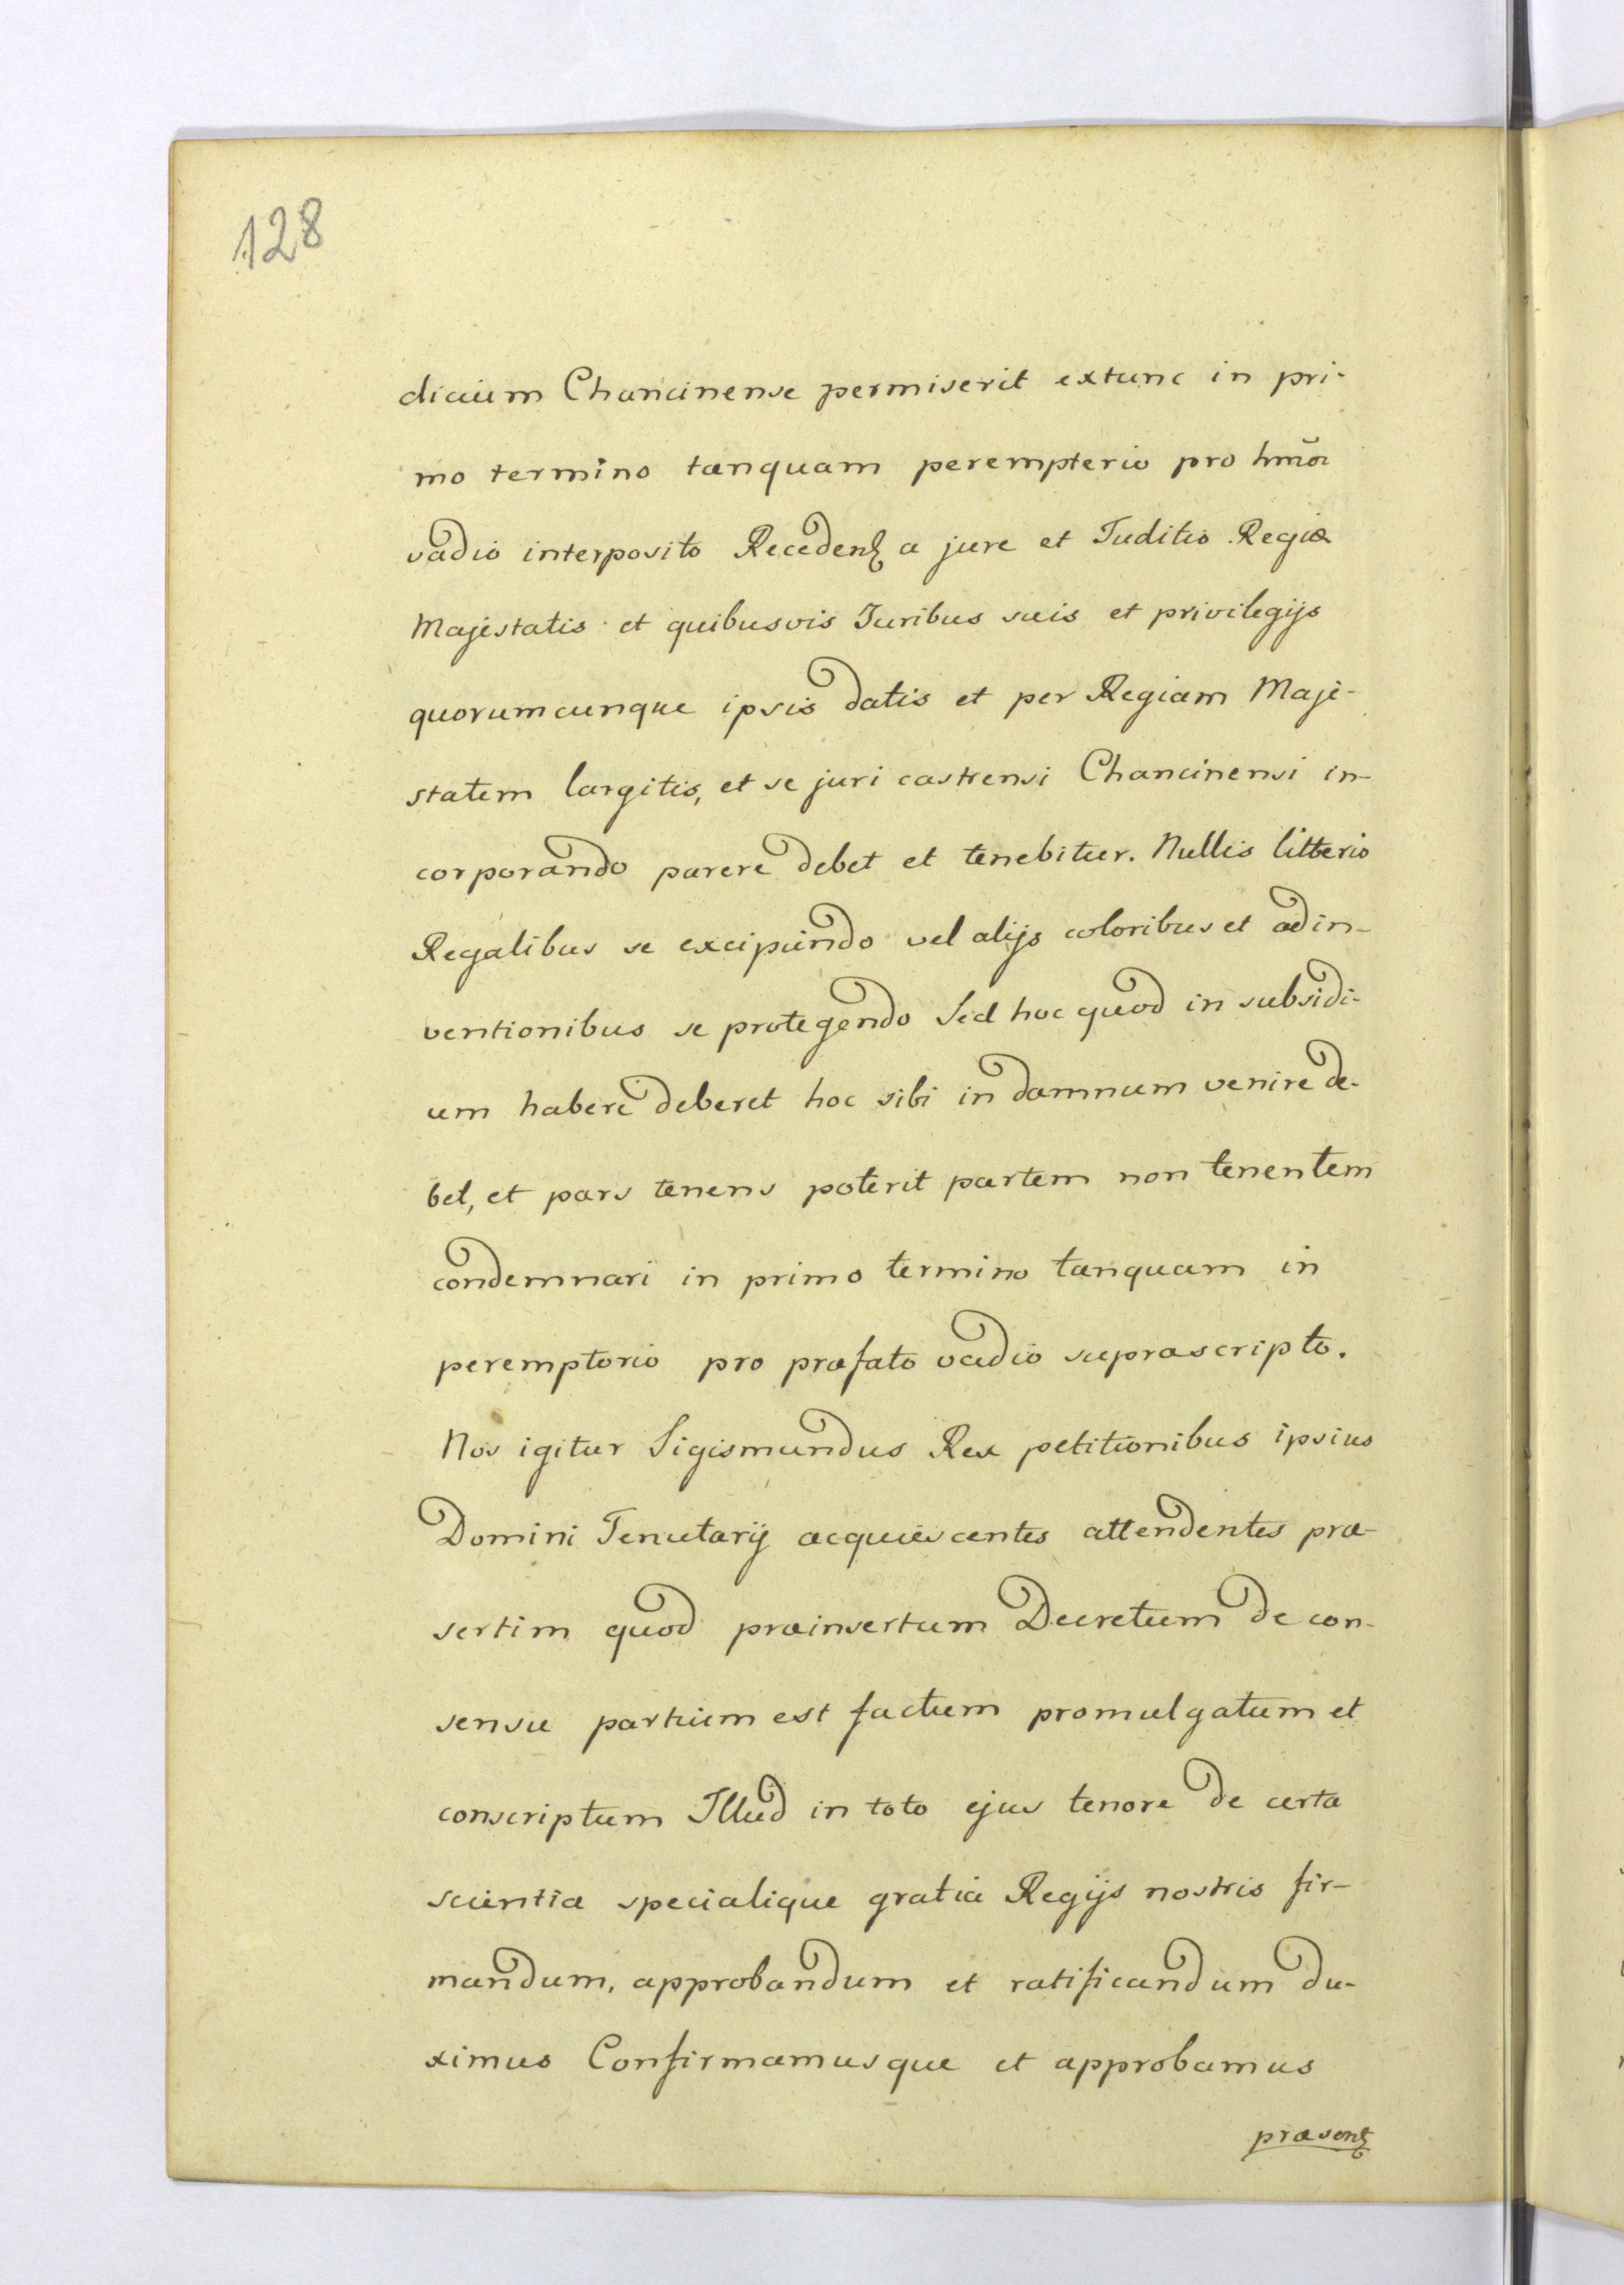 128
dicium Chancinense permiserit extunc in pri-
mo termino tanquam perempterio pro hm̄oi
vadio interposito Recedenꝭ a jure et Juditio Regiæ
Majestatis et quibusvis Juribus suis et privilegijs
quorumcunque ipsis datis et per Regiam Maje-
statem largitis, et se juri castrensi Chancinensi in-
corporando parere debet et tenebitur. Nullis litteris
Regalibus se excipiendo vel alijs coloribus et adin-
ventionibus se protegendo Sed hoc quod in subsidi-
um habere deberet hoc sibi in damnum venire de-
bet, et pars tenens poterit partem non tenentem
condemnari in primo termino tanquam in
peremptorio pro præfato vadio suprascripto.
Nos igitur Sigismundus Rex petitionibus ipsius
Domini Tenutarij acquiescentes attendentes præ-
sertim quod præinsertum Decretum de con-
sensu partium est factum promulgatum et
conscriptum Illud in toto ejus tenore de certa
scientia specialique gratia Regijs nostris fir-
mandum, approbandum et ratificandum du-
ximus Confirmamusque et approbamus
præsenꝭ